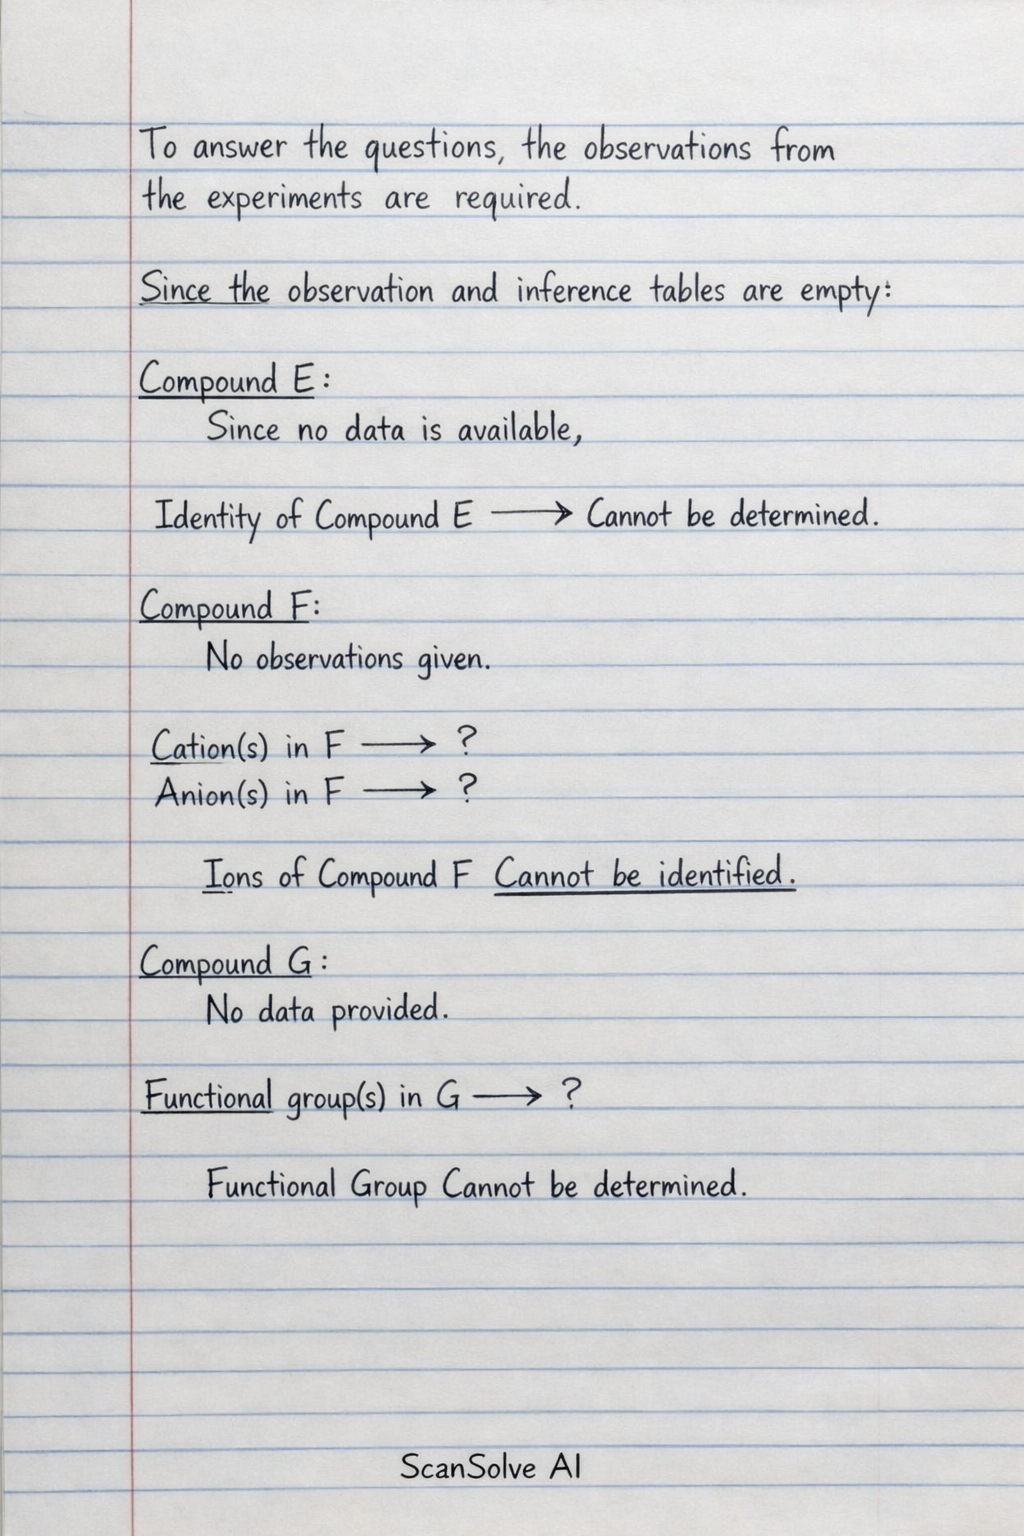 To answer the questions, the observations from
the experiments are required.
Since the observation and inference tables are empty:
Compound E:
Since no data is available,
Identity of Compound E ⟶ Cannot be determined.
Compound F:
No observations given.
Cation(s) in F ⟶ ?
Anion(s) in F ⟶ ?
Ions of Compound F Cannot be identified.
Compound G:
No data provided.
Functional group(s) in G ⟶ ?
Functional Group Cannot be determined.
ScanSolve AI